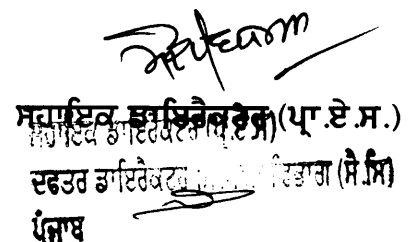 ਸਹਾਇਕ ਡਾਇਰੈਕਟਰ (ਪ੍ਰਾ.ਏ.ਸ.)
ਸਹਾਇਕ ਡਾਇਰੈਕਟਰ
ਦਫਤਰ ਡਾਇਰੈਕਟਰ (ਸੈ.ਸਿ)
ਪੰਜਾਬ